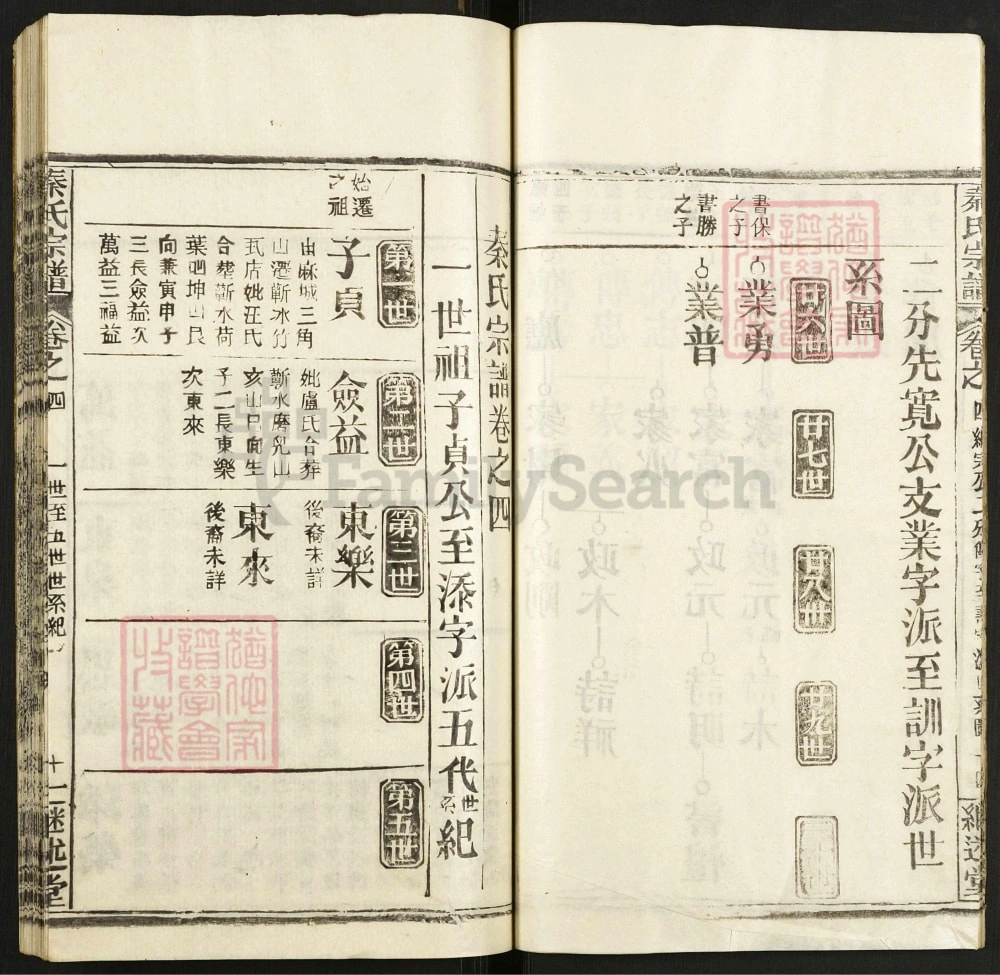 秦氏宗譜
卷之
二分先寬公支業字派至訓字派世
系圖
廿六世
廿七世
廿八世
廿九世
書保之子
業勇
書勝之子
業普
秦氏宗譜卷之四
一世祖子貞公至添字派五代世系紀
第一世
第二世
第三世
第四世
第五世
始遷之祖
子貞
由麻城三角
山遷蘄水竹
瓦店妣汪氏
合塟蘄水荷
葉地坤山艮
向兼寅申子
三長僉益次
萬益三福益
僉益
妣盧氏合葬
蘄水磨兒山
亥山巳向生
子二長東樂
次東來
東樂
後裔未詳
東來
後裔未詳
秦氏宗譜
卷之四
一世至五世世系紀
繼述堂
FamilySearch